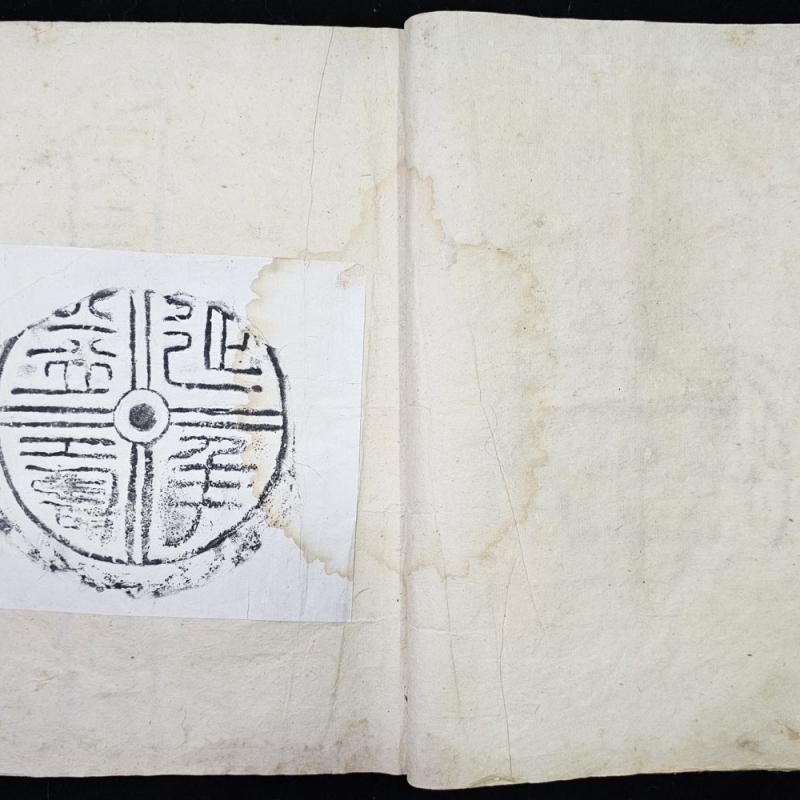 延年
益壽